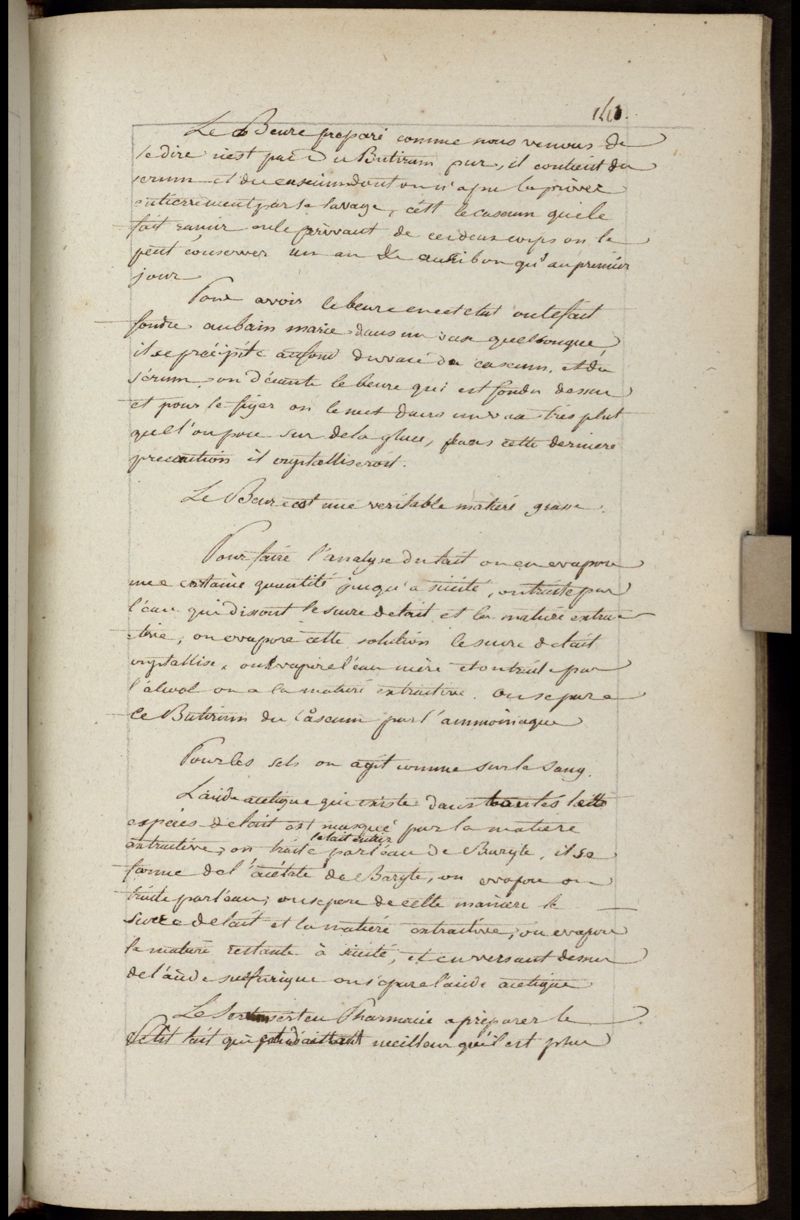 141.
Le Beure preparé comme nous venons de
le dire n'est pas du Butirum pur, il contient du
serum et du caseum dont on n'a pu le priver
entierrement par le lavage, c'est le caseum qui le
fait rancir on le privant de ces deux corps on le
peut conserver un an aussi bon qu'au premier
jour
Pour avoir le beure en cet etat on le fait
fondre au bain marie dans un vase quelconque,
il se précipite au fond du vase du caseum, et du
sérum on décante le beure qui est fondu dessu
et pour le figer on le met dans un vase très plat
que l'on pose sur de la glace, sans cette derniere
precaution il crystalliseroit.
Le Beure est une veritable matiere grasse.
Pour faire l'analyse du lait on en evapore
une certaine quantité jusqu'a siccité, on traite par
l'eau qui dissout le sucre de lait et la matiere extrac-
tive, on evapore cette solution le sucre de lait
crystallise, on evapore l'eau mère et on traite par
l'alcool on a la matiere extractive. on separe
le Butirum du Caseum par l'ammoniaque
Pour les sels on agit comme sur le sang.
L'acide acetique qui existe dans toutes les
especes de lait est masqué par la matiere
extractive, on traite le lait entier par l'eau de Baryte, il se
forme de l'acétate de Baryte, on evapore on
traite par l'eau, on separe de cette maniere le
sucre de lait et la matiere extractive, on evapore
la matiere restante à siccité, et en versant dessu
de l'acide sulfurique on separe l'acide acetique
Le Serum sert en Pharmacie a préparer le
Petit lait qui est d'autant meilleur qu'il est plus